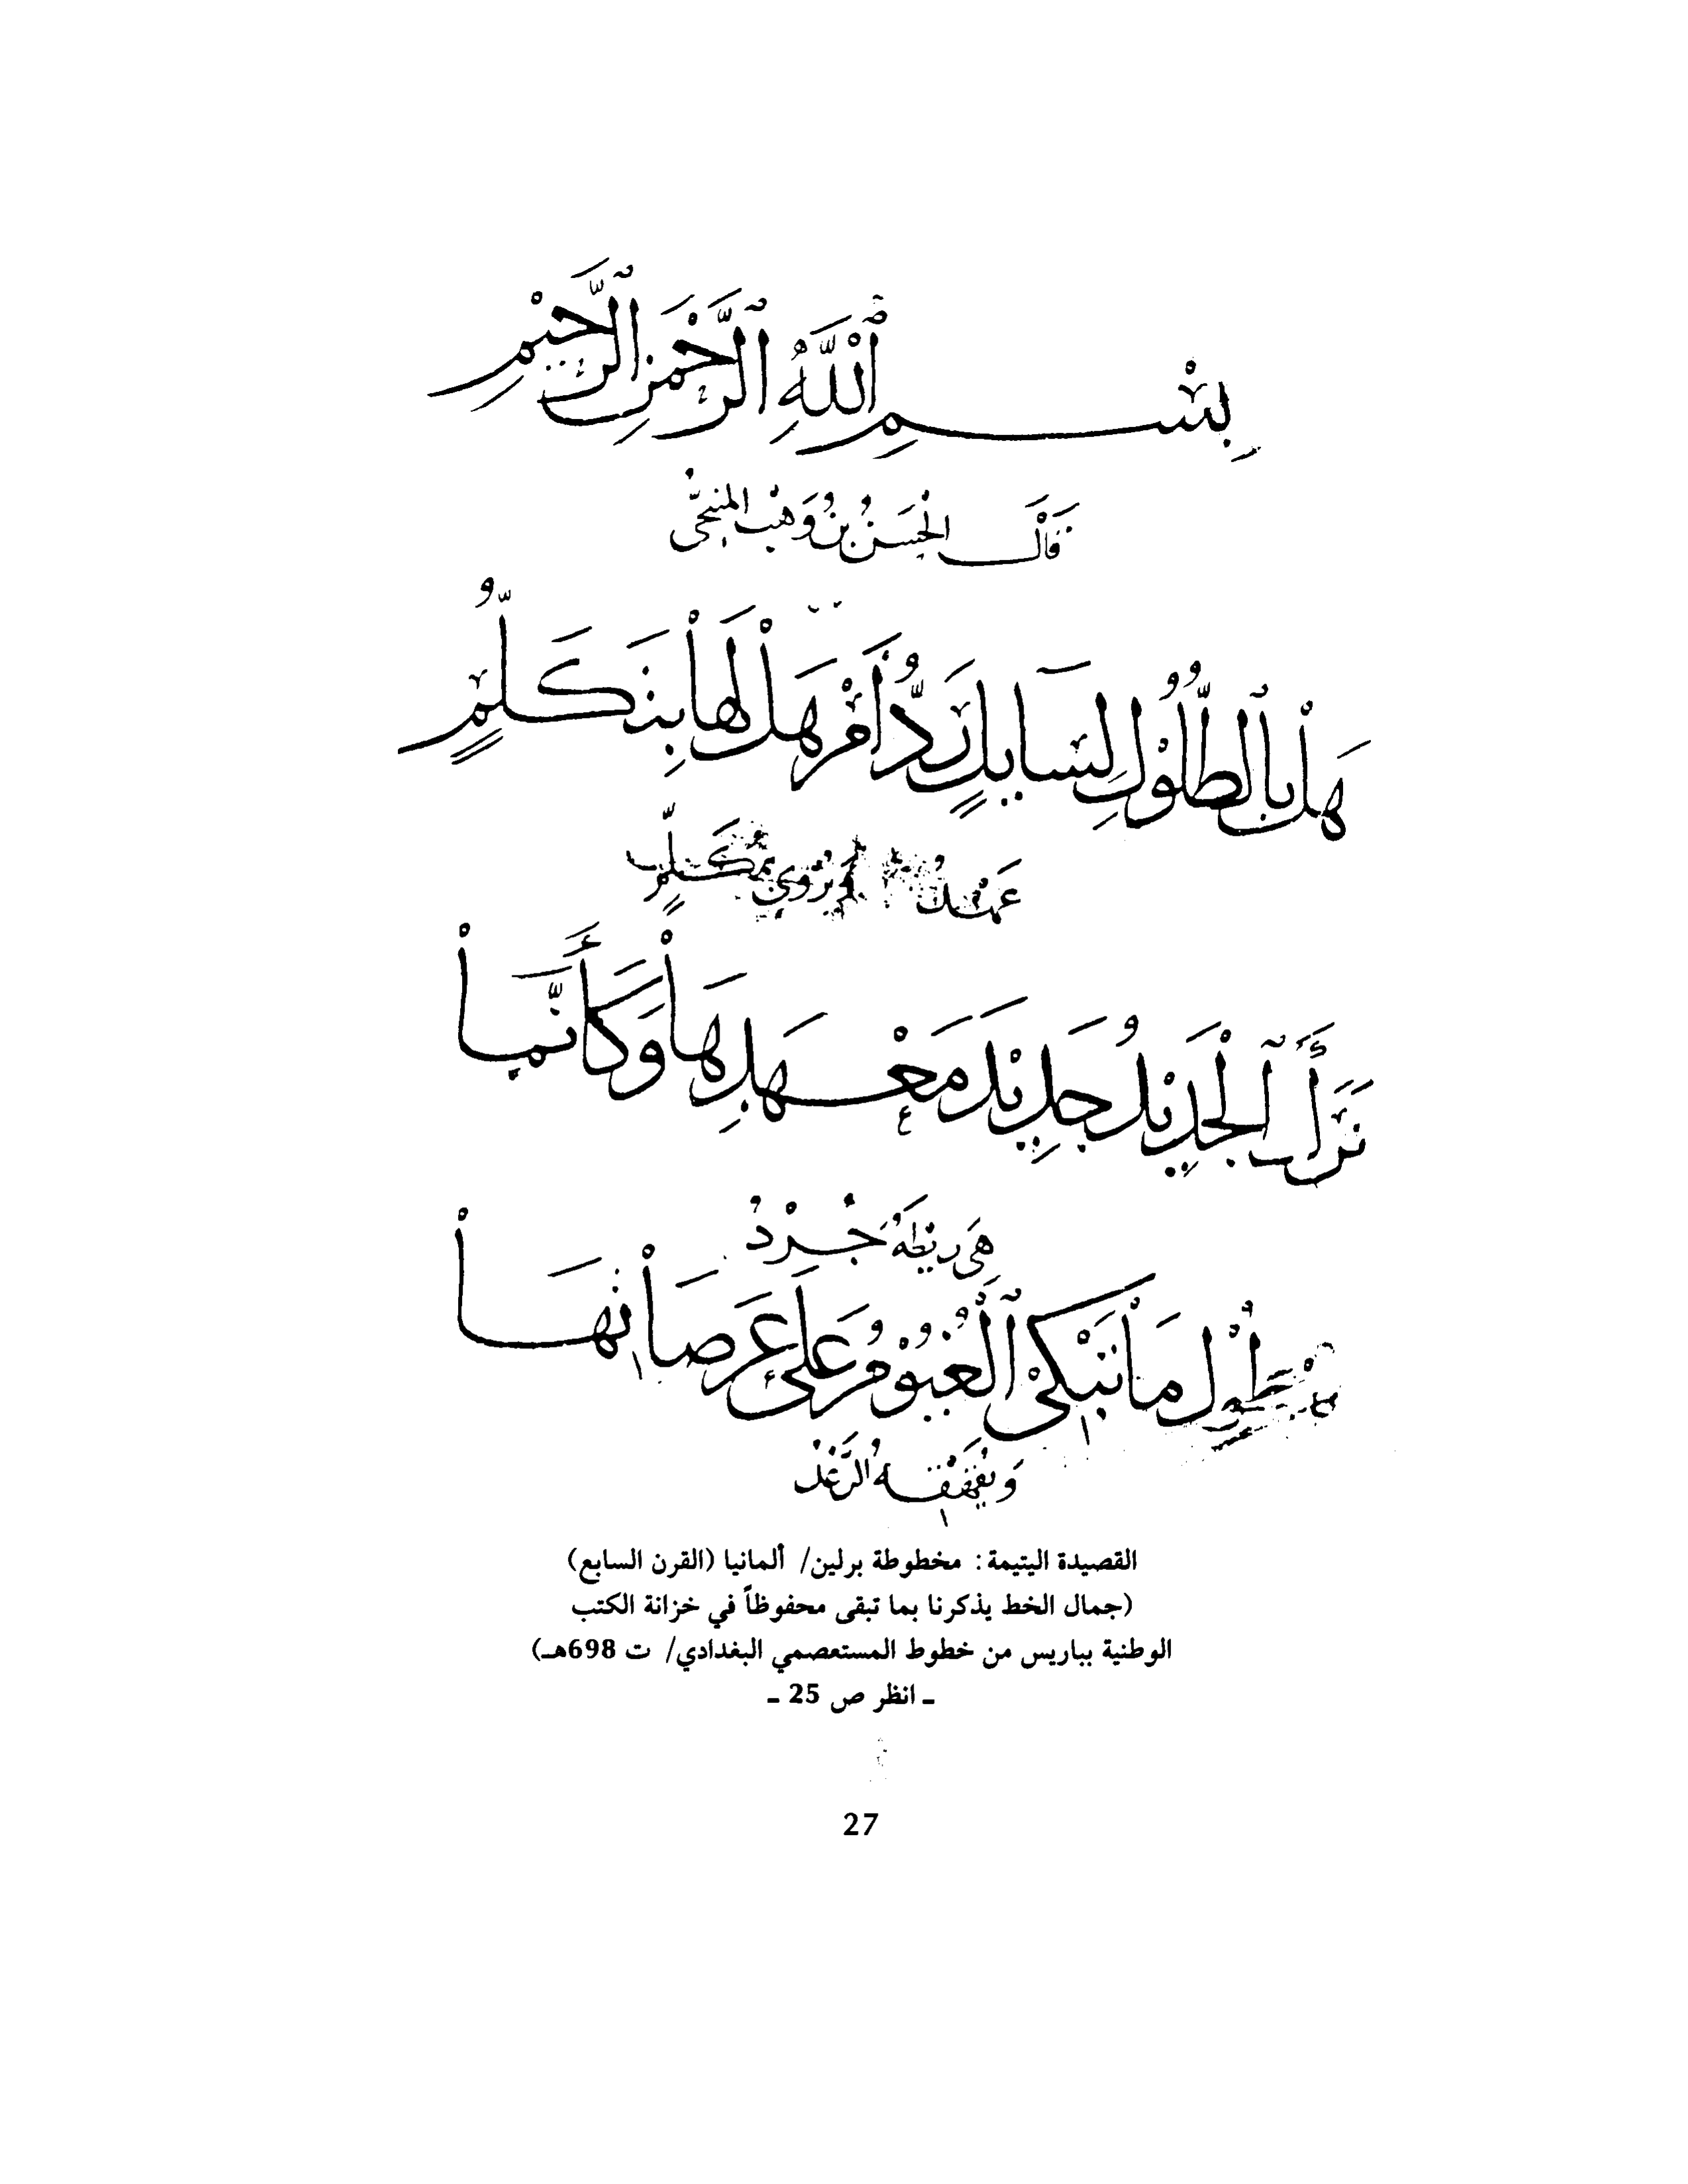 بِسْمِ ٱللَّهِ ٱلرَّحْمَنِ ٱلرَّحِيْمِ
قَالَ الحَسَنُ بنُ وَهْب المنبجي
هَلْ بِالطُّلُوْلِ لِسَايِلٍ رَدُّ أَمْ هَلْ لَهَا بِتَكَلُّمٍ
عَهْدُ يُرْوى بمُكَلَّمٍ
نَزَلَ ٱلْجَدِيْدُ جَدِيْدَ مَعْهَدِهَا وَكَأَنَّمَا
هَى رَيْطَةٌ جُرْدُ
مِنْ طُوْلِ مَا تَبْكِىْ ٱلْغُيُوْمُ عَلَى عَرَصَاتِهَا
وَيُقَهْقِهُ الرَّعْدُ
القصيدة اليتيمة: مخطوطة برلين/ ألمانيا (القرن السابع)
(جمال الخط يذكرنا بما تبقى محفوظاً في خزانة الكتب
الوطنية بباريس من خطوط المستعصمي البغدادي/ ت 698هـ)
ـ انظر ص 25 ـ
27